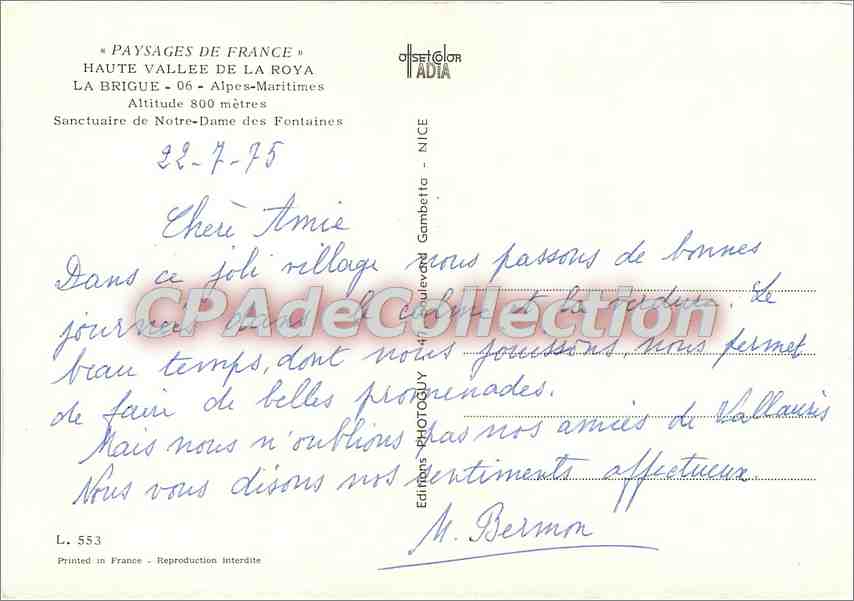 « PAYSAGES DE FRANCE »
HAUTE VALLEE DE LA ROYA
LA BRIGUE - 06 - Alpes-Maritimes
Altitude 800 mètres
Sanctuaire de Notre-Dame des Fontaines
offsetcolor
ADIA
22-7-75
Cherè Amie
Dans ce joli village nous passons de bonnes
journeés dans le calme et la verdure. Le
beau temps, dont nous jouissons, nous permet
de faire de belles promenades.
Mais nous n'oublions pas nos amiès de Vallauris
Nous vous disons nos sentiments affectueux.
M. Bermon
Editions PHOTOGUY - 47, Boulevard Gambetta - NICE
CPAdeCollection
L. 553
Printed in France - Reproduction interdite